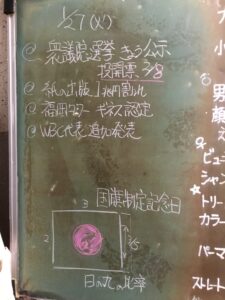 1/27(火)
@ 衆議院選挙 きょう公示
投開票 2/8
@ 紙の出版 1兆円割れ
@ 福岡タワー ギネス認定
@ WBC代表追加発表
国旗制定記念日
3
2
3/5
日の丸の比率
男
顔
シャン
トリー
カラー
パーマ
ストレート